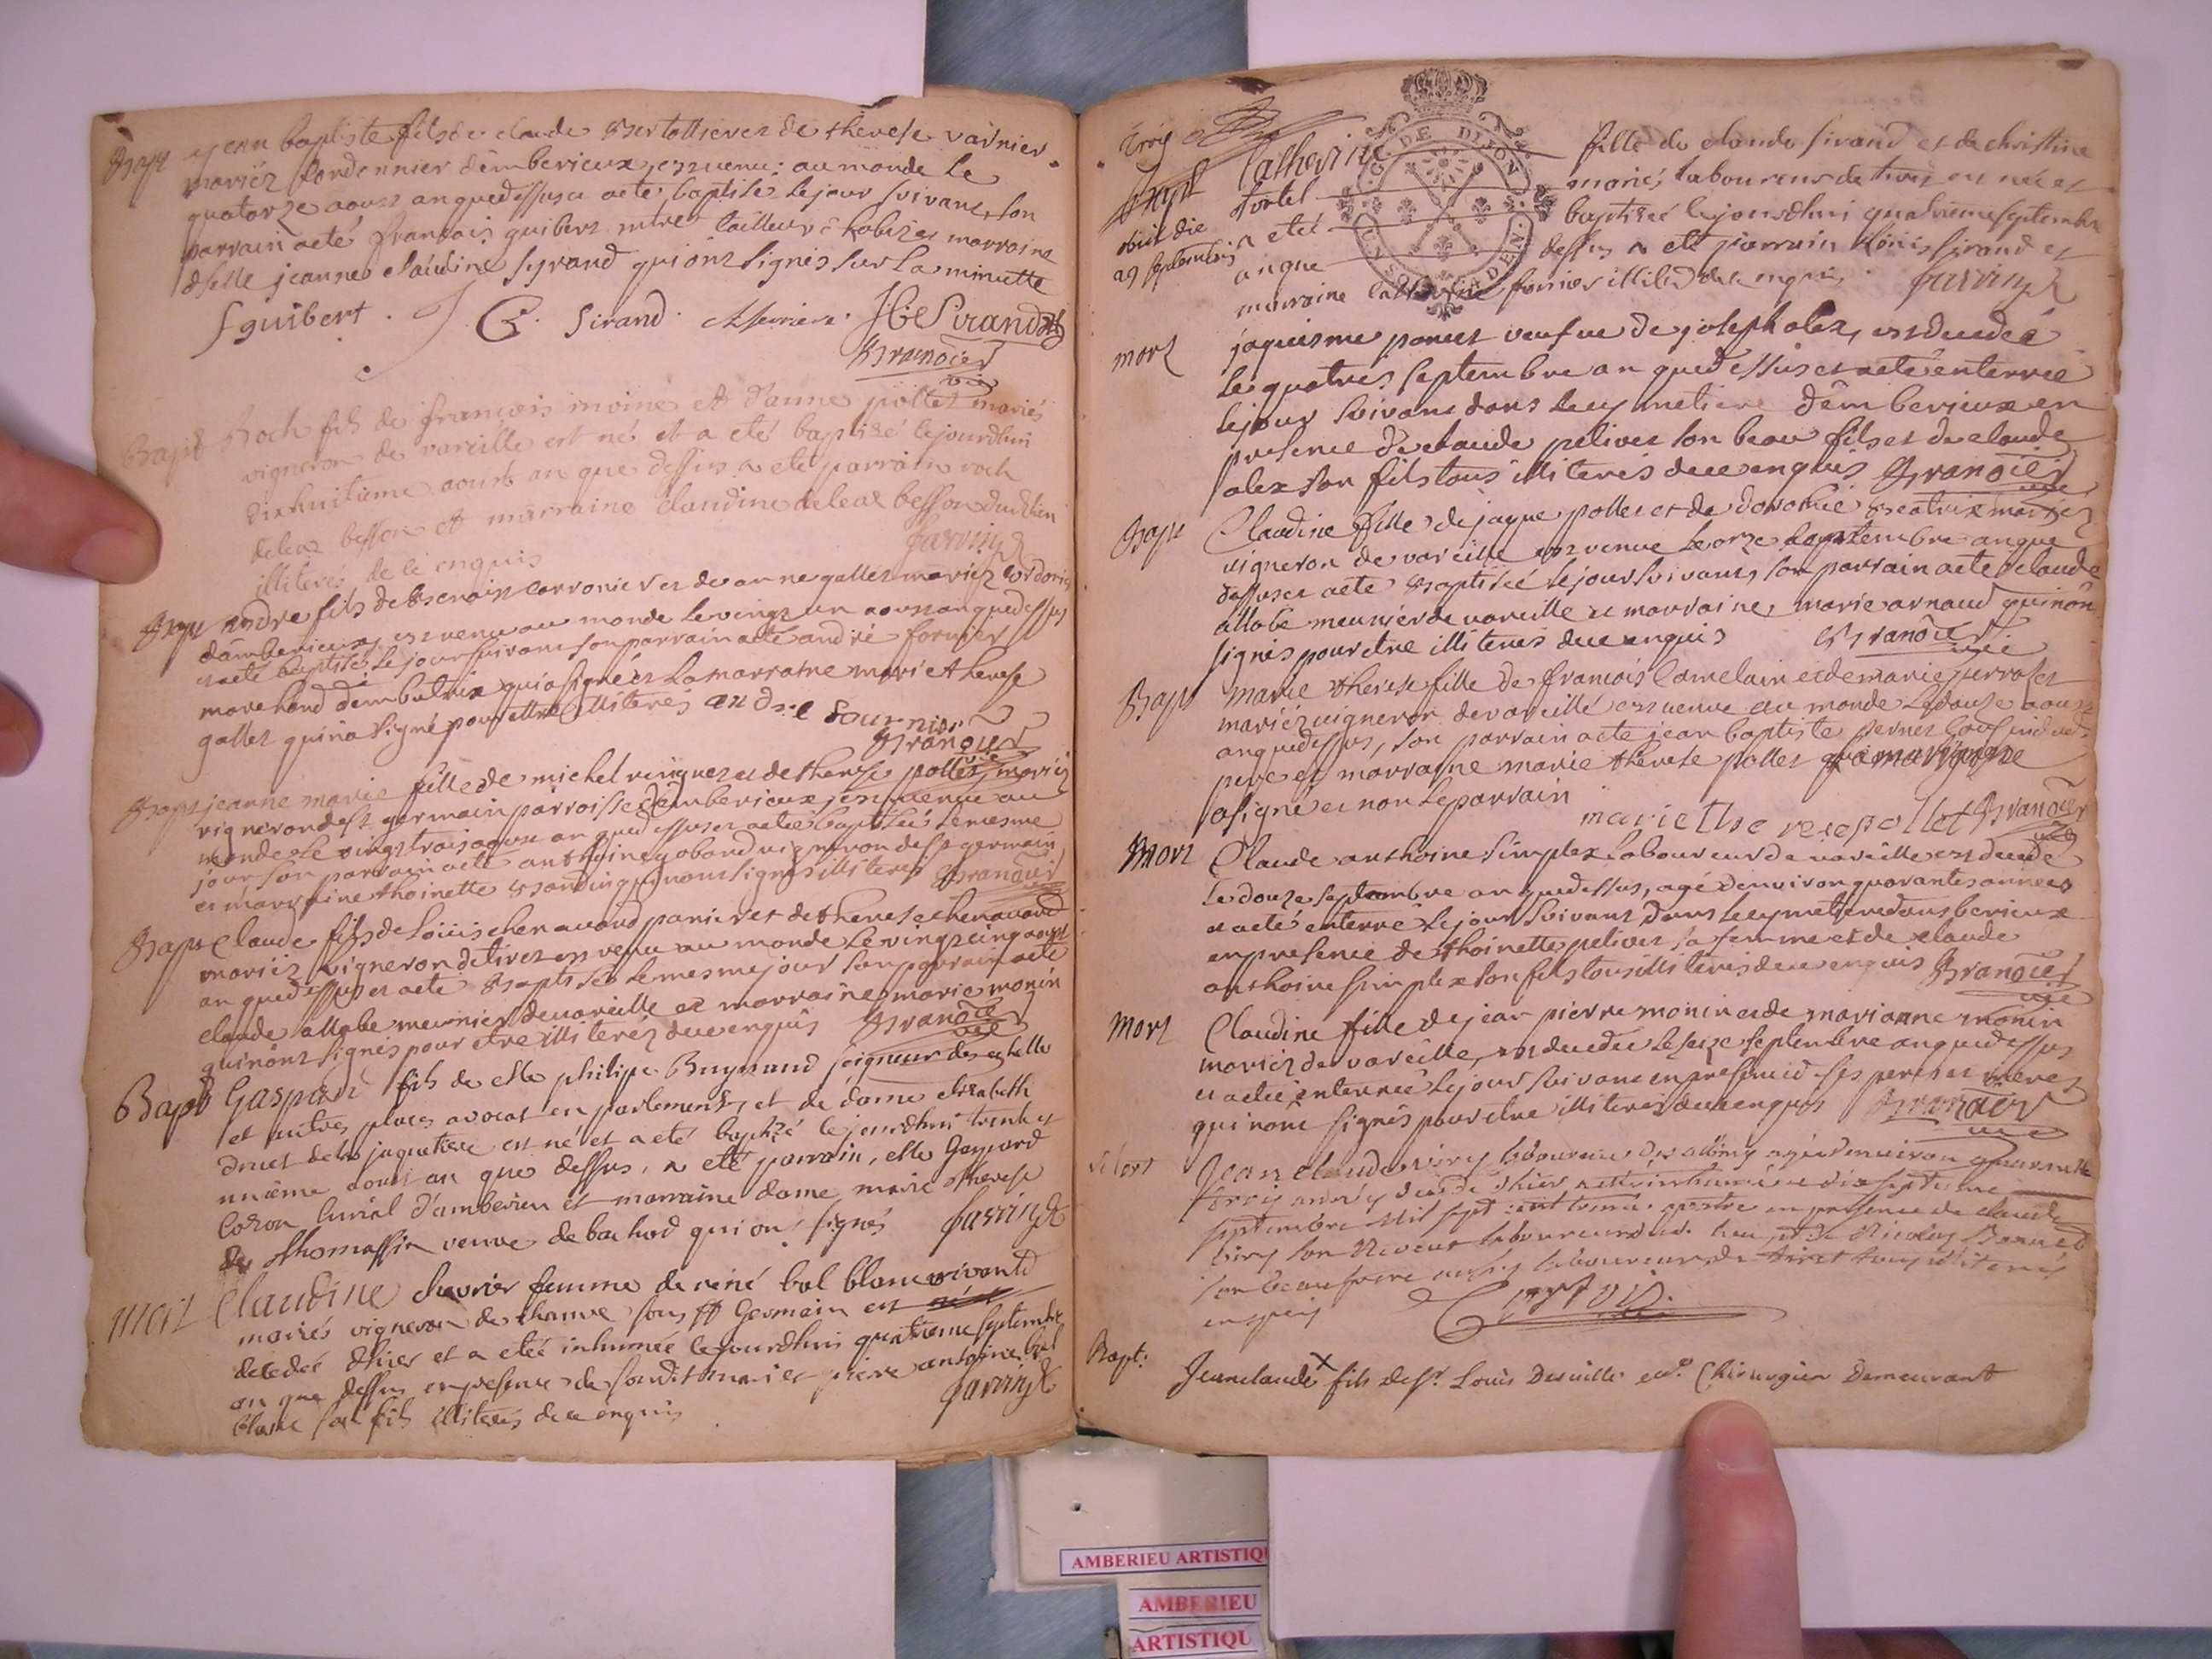 Bapt jean baptiste fils de claude et de therese varnier
mariez cordonnier d'emberieux, est venu au monde le
quatorze aoust an que dessus a eté baptisé le jour suivant, son
parrain a eté francois guibert mtre tailleur d'habis et marraine
dlle jeanne claudine syrand qui ont signés sur la minutte
f guibert. J C Sirand. JC Sirand
Granoier
vic
Bapt Roch fils de françois moine et d'anne pollet mariés
vigneron de vareille est né et a eté baptisé le jourdhui
dixhuitieme aoust an que dessus a eté parrain roch
deleaz besson et marraine claudine deleaz besson
illiterés de ce enquis
Jarrin
Bapt andre fils de benoist carronier et de anne gallet mariez
d'amberieux, est venu au monde le vingt un aoust an que dessus
et a eté baptisé le jour suivant son parrain a eté andré fornier
marchand d'embutrix qui a signé et la marraine marie therese
gallet qui n'a signé pour estre illiteres andre fournier
Granoier
Bapt jeanne marie fille de michel et de therese pollet, mariez
vigneron de st germain parroisse d'emberieux, est venue au
monde le vingt trois aoust an que dessus et a eté baptisée le mesme
jour son parrain a eté anthoine gobard vigneron de st germain
et marraine thoinette qui n'ont signés illiteres Granoier
Bapt Claude fils de loüis chenavard panier et de therese chenavard
mariez vigneron de tiret est venu au monde le vingt cinq aoust
an que dessus et a eté baptisé le mesme jour son parrain a eté
claude allabe meunier de vareille et marraine marie monin
qui n'ont signés pour etre illiterez de ce enquis Granoier
vic
Bapt Gaspard fils de Me philipe Buynand seigneur des echelles
et autres places avocat en parlement, et de dame elizabeth
druet de la jaquetiere est né et a eté baptizé le jourdhui trente et
unieme aoust an que dessus, a eté parrain, Me Gaspard
Cozon curial d'amberieu et marraine dame marie therese
de thomassin veuve de bachod qui ont signés Jarrin
Mort Claudine chevrier femme de réné bal blanc vivants
mariés vigneron de chauve sous st Germain est
decedée d'hier et a eté inhumée le jourdhui quatrieme septembre
an que dessus en presence de son dit mari et pierre antoine bal
blanc son fils illiterés de ce enquis Jarrin
Trois
Bapt Catherine fille de claude sirand et de christine
obiit die tortel mariés laboureurs de tiret est née et
29 septembris a eté baptisée le jourdhui quatrieme septembre
an que dessus a eté parrain denis sirand et
marraine catherine fornier illiterés de ce enquis Jarrin
G. DE DIJON
mort jaquisme poncet veufve de joseph alex, est decedée
le quatres septembre an que dessus et a eté enterrée
le jour suivant dans le cymetiere d'emberieux en
presence de claude pelivet son beau fils et de claude
alex son fils tous illiterés de ce enquis Granoier
vic
Bapt Claudine fille de jaque pollet et de dorothée beatrix mariez
vigneron de vareille est venue le onze septembre an que
dessus et a eté baptisée le jour suivant, son parrain a eté claude
allabe meunier de vareille et marraine marie arnaud qui n'ont
signés pour etre illiteres de ce enquis Granoier
vic
Bapt Marie therese fille de francois Camelain et de marie perroset
mariéz vigneron de vareille est venue au monde le douze aoust
an que dessus, son parrain a eté jean baptiste
pere et marraine marie therese pollet
a signé et non le parrain marie therese pollet Granoier
Mort Claude anthoine simplex laboureur de vareille est decedé
le douze septembre an que dessus, agé d'environ quarantes années
et a eté enterré le jour suivant dans le cymetiere d'emberieux
en presence de thoinette pelivet sa femme et de claude
anthoine simplex son fils tous illiterés de ce enquis Granoier
vic
Mort Claudine fille de jean pierre monin et de marianne monin
mariez de vareille, est decedée le seize septembre an que dessus
et a eté enterrée le jour suivant en presence de ses pere et mere
qui n'ont signés pour etre illiterés de ce enquis Granoier
vic
Mort Jean claude viry laboureur des allimes agé d'environ quarante
trois années decedé d'hier a eté inhumé ce dix septieme
septembre mil sept cent trente quatre en presence de claude
viry son neveux laboureur dud. lieu, et de Nicolas Bonnet
son beau frere aussi laboureur de tiret tous illiterés
enquis
Bapt: Jean claude fils de Sr. Louis Deville me. Chirurgien Demeurant
AMBERIEU ARTISTIQU
AMBERIEU
ARTISTIQU